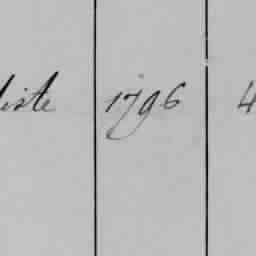 liste 1796 4